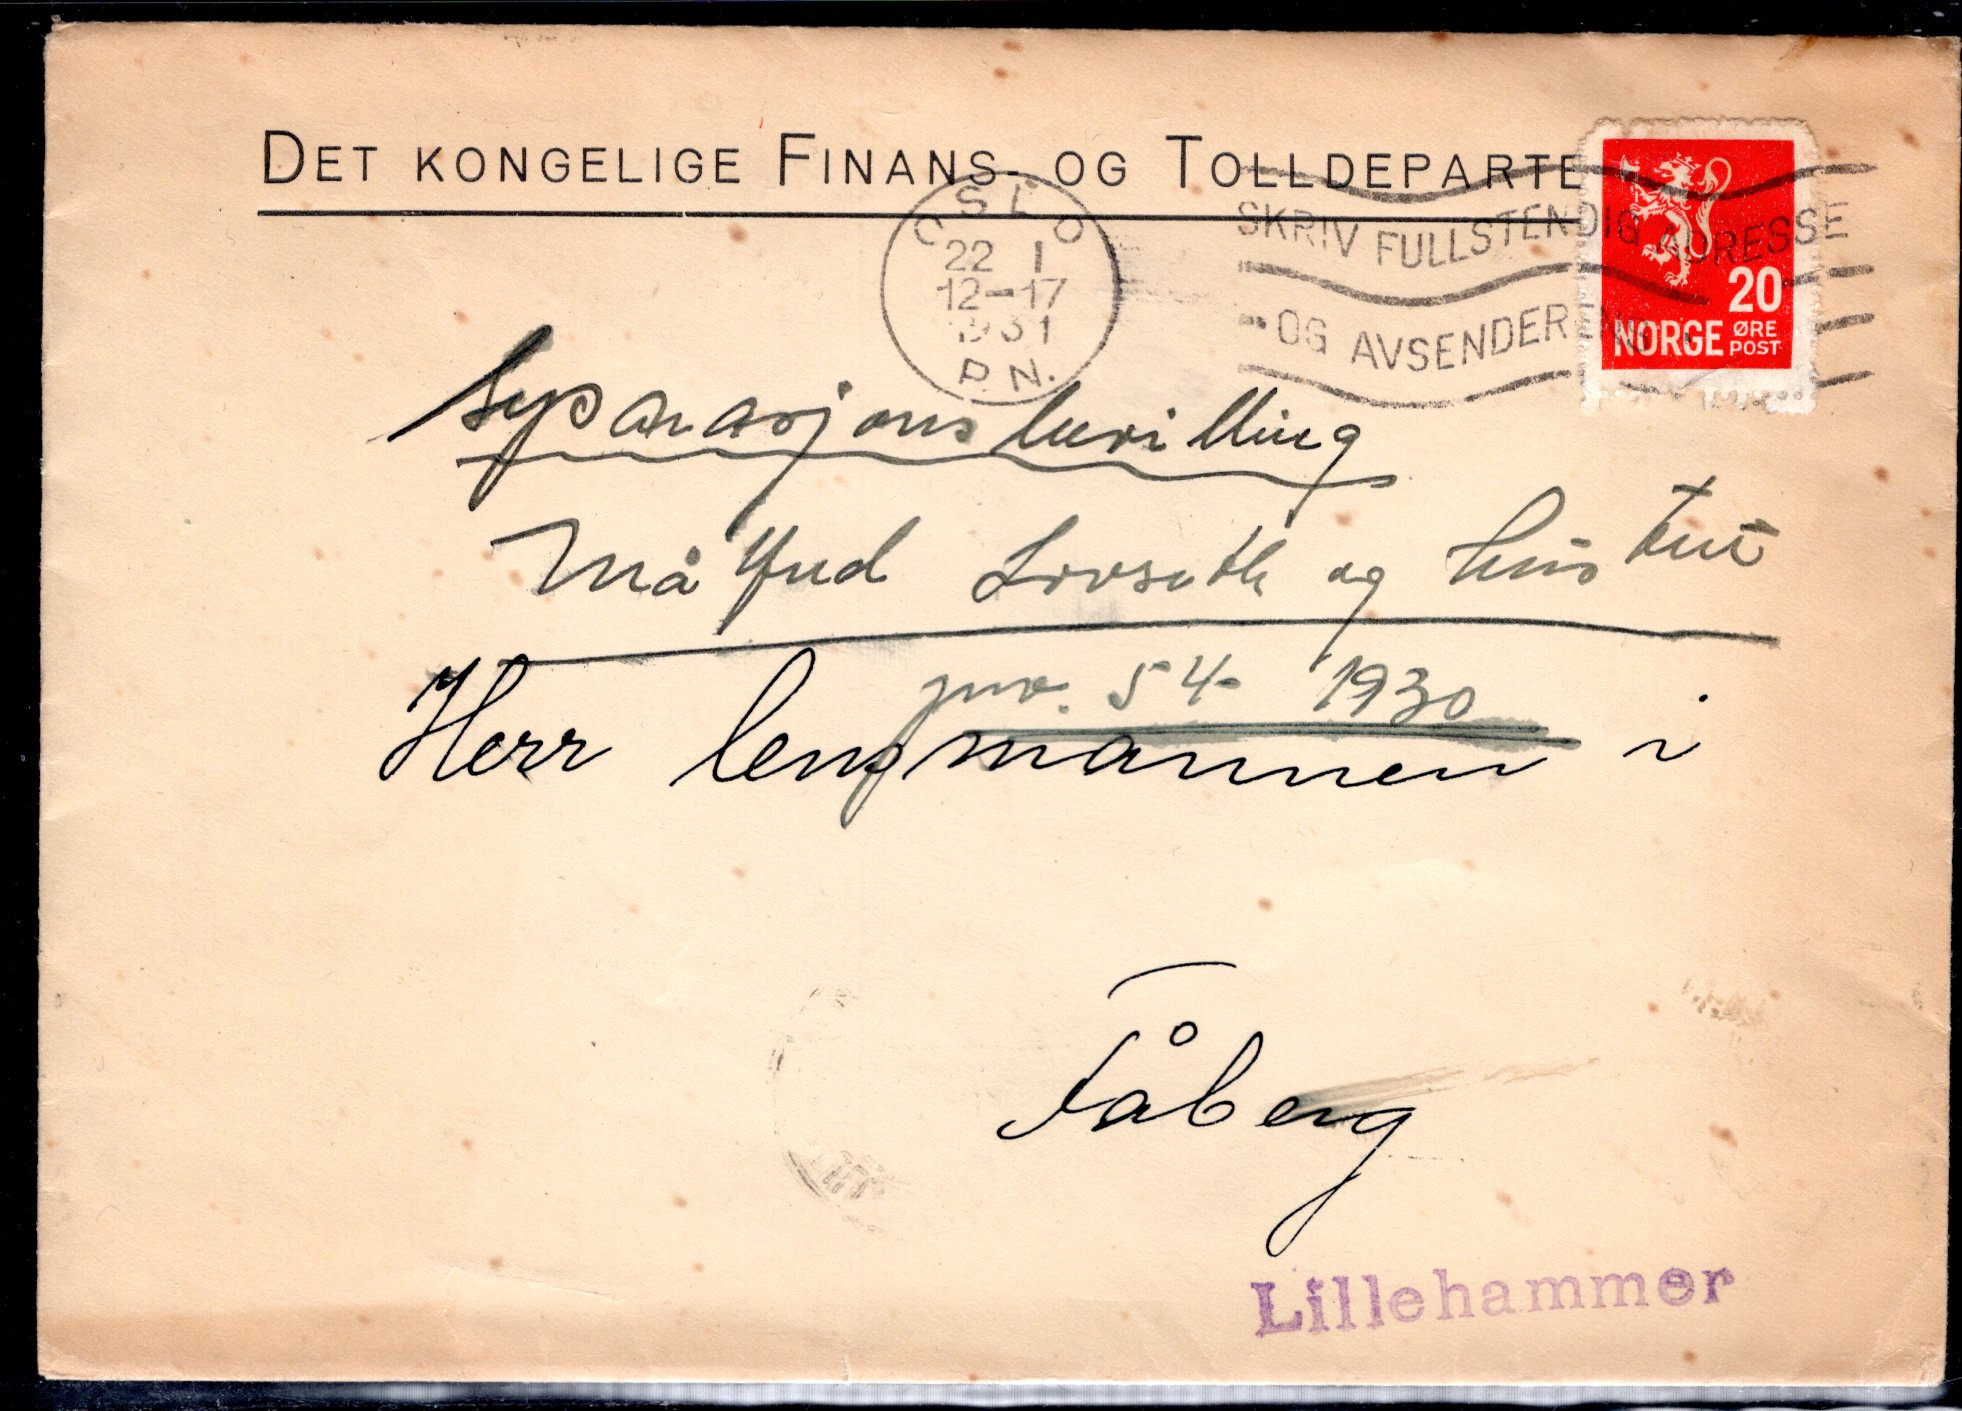 DET KONGELIGE FINANS- OG TOLLDEPARTE
OSLO
22 1
12-17
1931
P.N.
SKRIV FULLSTENDIG ADRESSE
OG AVSENDER
20
NORGE ØRE
POST
Separasjonsbevilling
og
jnr. 54- 1930
Herr lensmannen i
Fåberg
Lillehammer